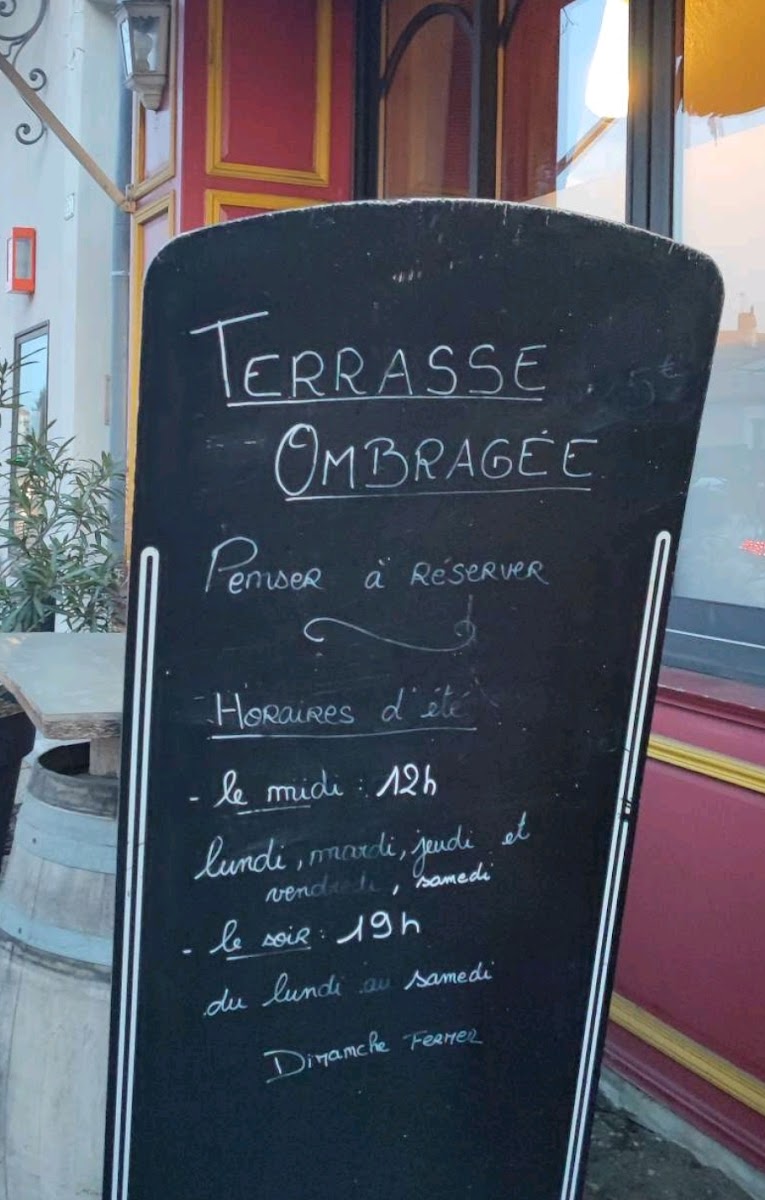 TERRASSE
OMBRAGÉE
5€
Penser à réserver
Horaires d'été
- le midi : 12h
lundi, mardi, jeudi et
vendredi, samedi
- le soir : 19h
du lundi au samedi
Dimanche Fermer